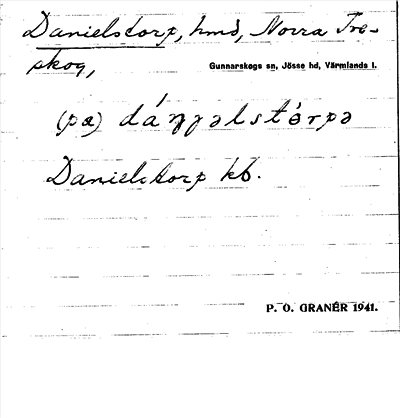 Danielstorp, hmd, Norra Tre-
skog,
Gunnarskogs sn, Jösse hd, Värmlands l.
(pœ) dáŋŋəlstòrpə
Danielstorp kb.
P. O. GRANÉR 1941.